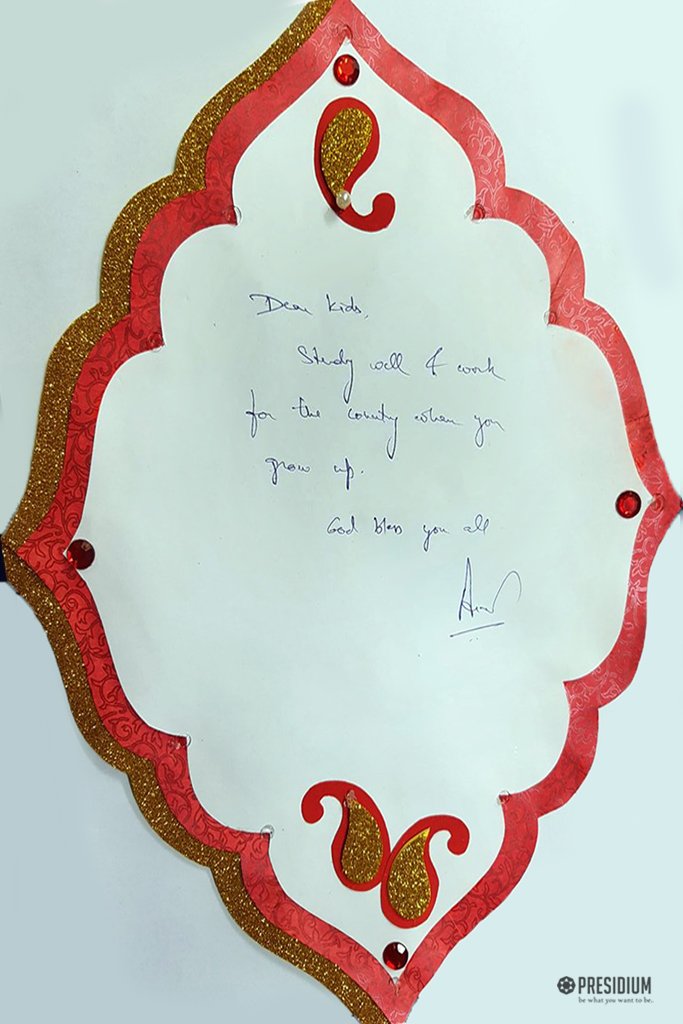 Dear Kids,
Study well & work
for the country when you
grow up.
God bless you all
PRESIDIUM
be what you want to be..